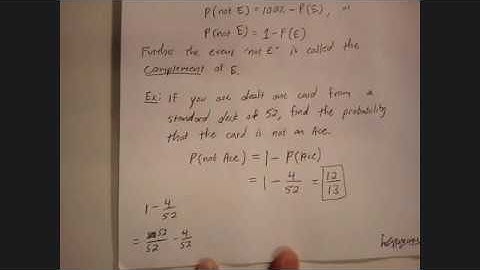 P(not E) = 100% - P(E), 
P(not E) = 1 - P(E)
Further the event "not E" is called the
complement of E.
Ex: If you are dealt one card from a
standard deck of 52, find the probability
that the card is not an Ace.
P(not Ace) = 1 - P(Ace)
= 1 - 4/52 = 12/13
1 - 4/52
= 52/52 - 4/52